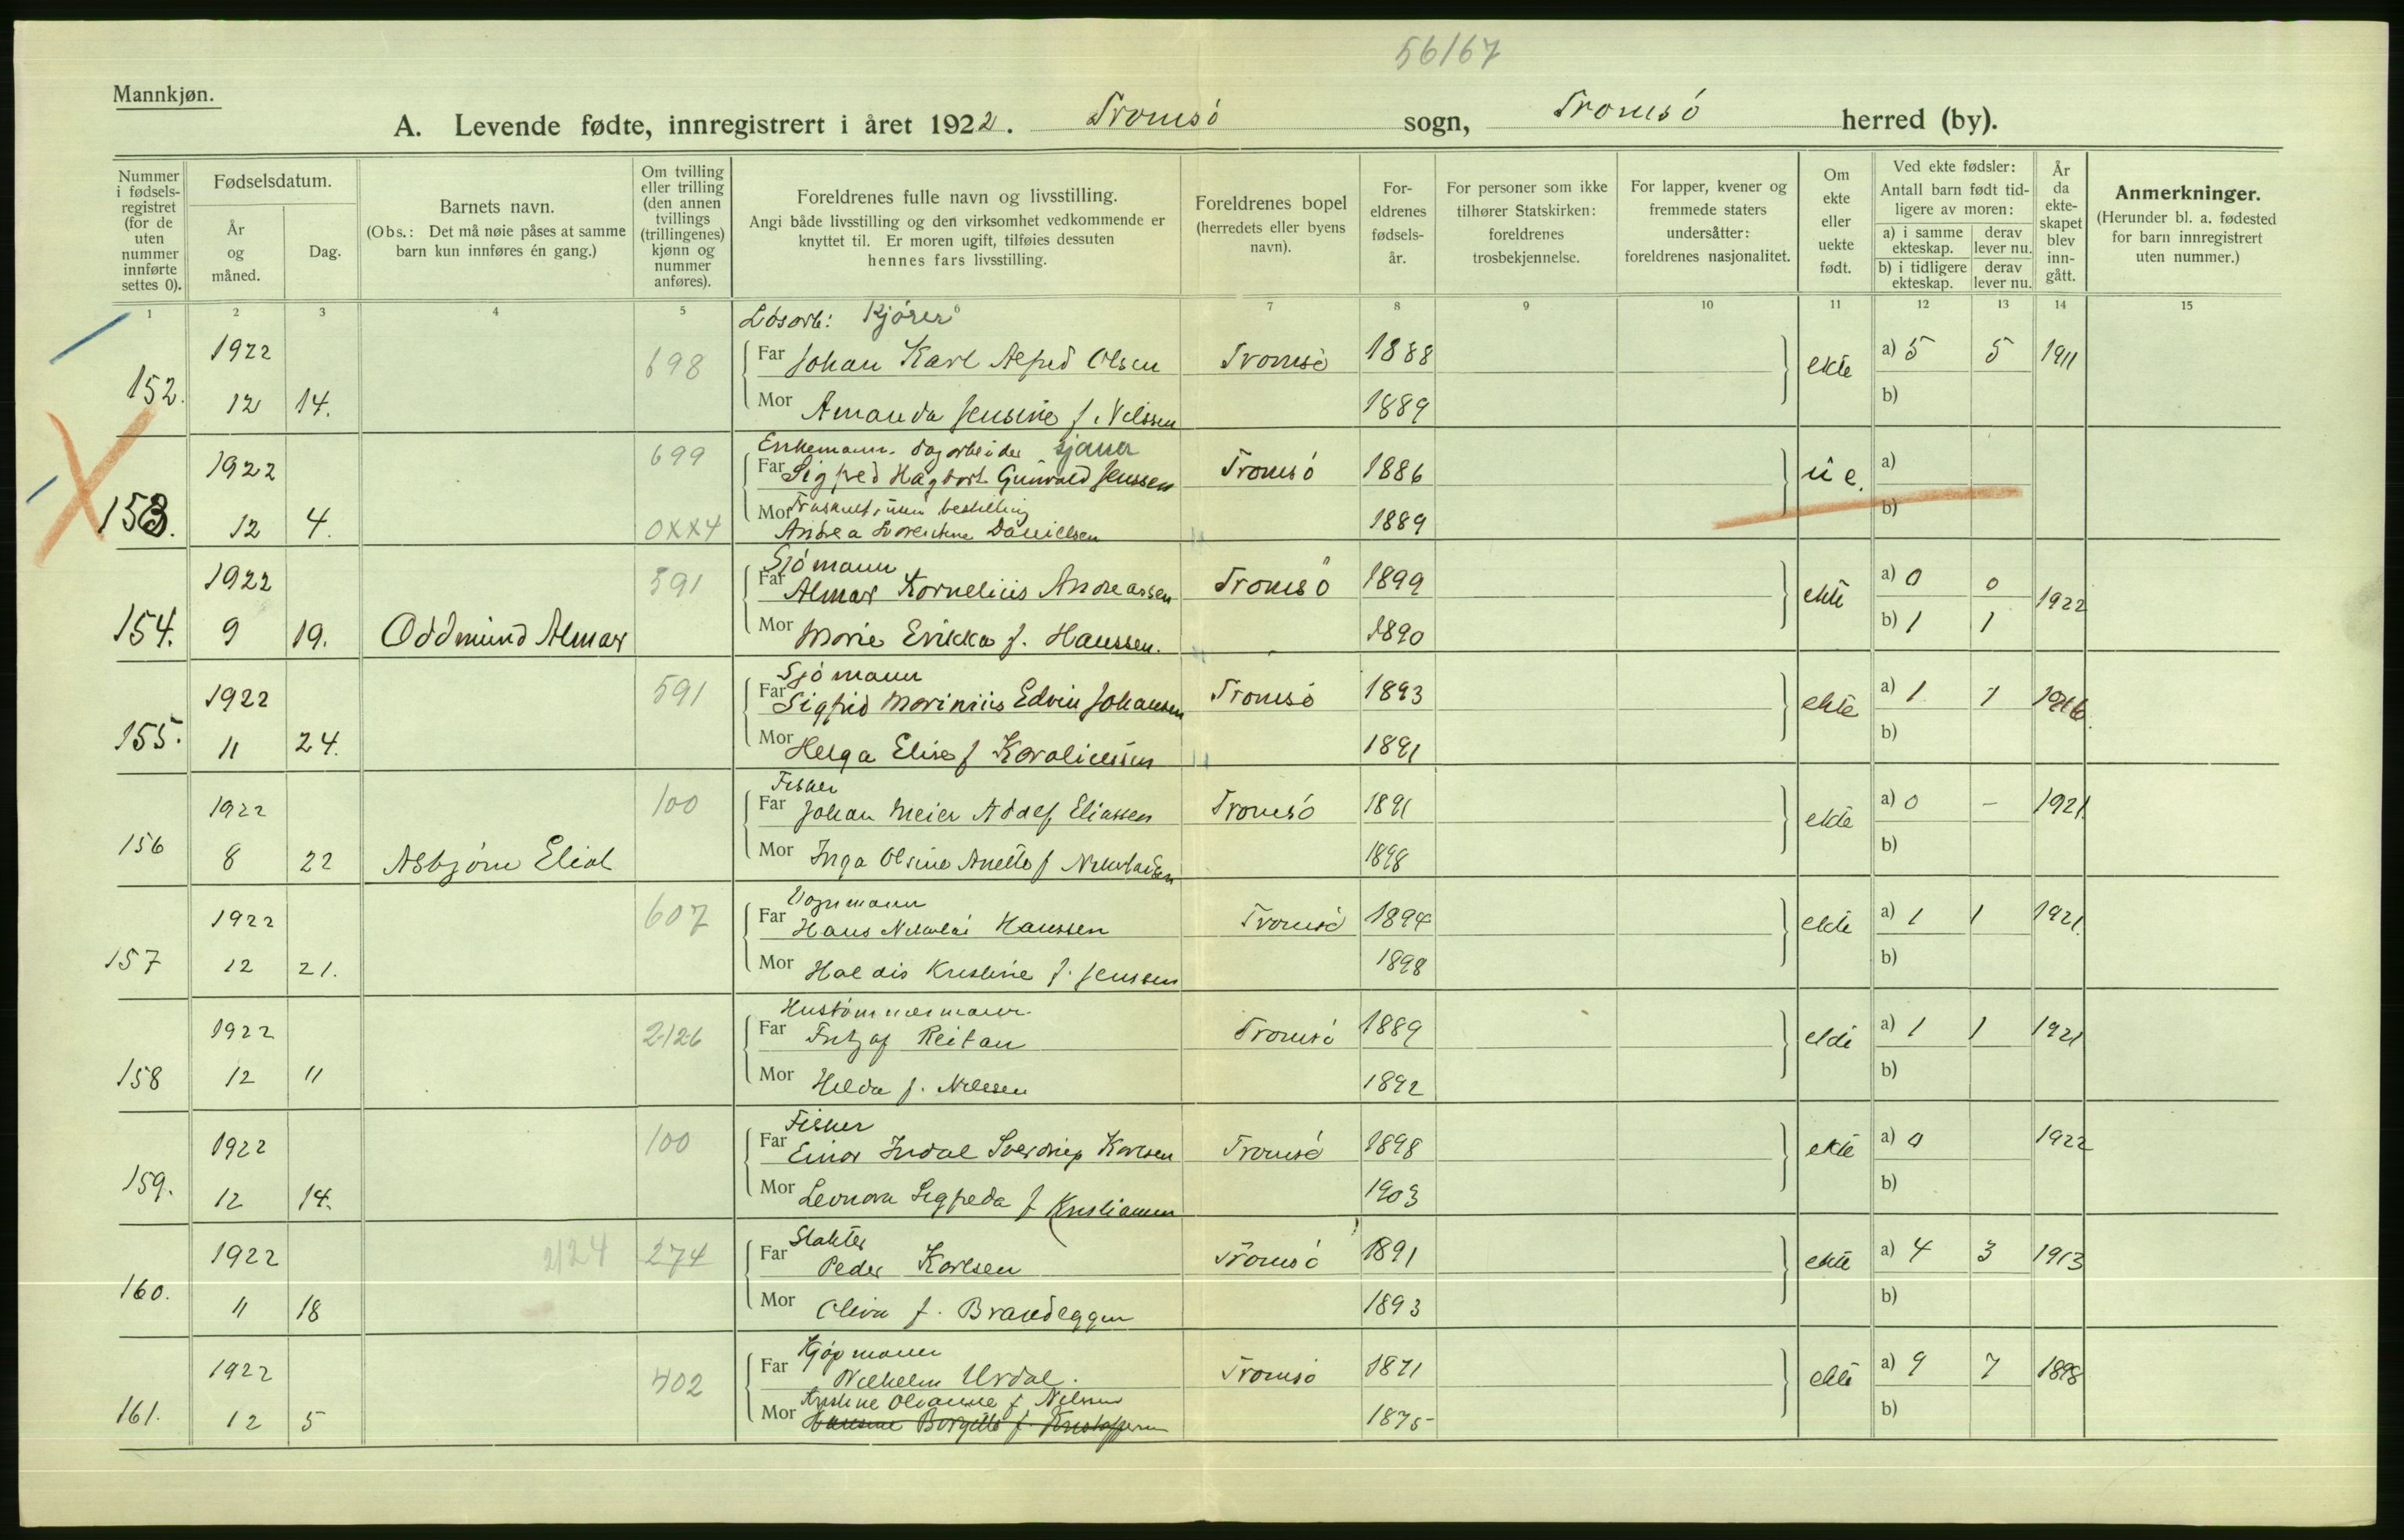 56/67
Mannkjøn.
A. Levende fødte, innregistrert i året 1922. Tromsö sogn, Tromsö herred (by).
Nummer i fødselsregistret (for de uten nummer innførte settes 0).
Fødselsdatum.
År og måned.
Dag.
Barnets navn.
(Obs.: Det må nøie påses at samme barn kun innføres én gang.)
Om tvilling eller trilling (den annen tvillings (trillingenes) kjønn og nummer anføres).
Foreldrenes fulle navn og livsstilling.
Angi både livsstilling og den virksomhet vedkommende er knyttet til. Er moren ugift, tilføies dessuten hennes fars livsstilling.
Foreldrenes bopel (herredets eller byens navn).
Foreldrenes fødselsår.
For personer som ikke tilhører Statskirken: foreldrenes trosbekjennelse.
For lapper, kvener og fremmede staters undersåtter: foreldrenes nasjonalitet.
Om ekte eller uekte født.
Ved ekte fødsler:
Antall barn født tidligere av moren:
a) i samme ekteskap. derav lever nu.
b) i tidligere ekteskap. derav lever nu.
År da ekteskapet blev inngått.
Anmerkninger.
(Herunder bl. a. fødested for barn innregistrert uten nummer.)
1 2 3 4 5 7 8 9 10 11 12 13 14 15
Lösarb: Kjörer
1922 698 Far Johan Karl Alfred Olsen Tromsö 1888 ekte a) 5 5 1911
152. 12 14. Mor Amanda Jensine f. Nilssen 1889 b)
Enkemann. Dagarbeider sjauer
1922 699 Far Sigfred Hagbart Gunvald Jenssen Tromsö 1886 u e. a)
153. 12 4. 0XX4 Mor bestilling
Andrea Danielsen 1889 b)
Sjömann
1922 591 Far Almar Kornelius Andreassen Tromsö 1899 ekte a) 0 0 1922
154. 9 19. Oddmund Almar Mor Marie Erikka f. Hanssen. 1890 b) 1 1
Sjömann
1922 591 Far Sigfrid Marinius Edvin Johansen Tromsö 1893 ekte a) 1 1 1916
155. 11 24. Mor Helga Elise f Karoliussen 1891 b)
Fisker
1922 100 Far Johan Meier Adolf Eliassen Tromsö 1891 ekte a) 0 – 1921
156 8 22 Asbjörn Eliot Mor Inga Olsine Anette f Nikolaisen 1898 b)
Vognmann
1922 607 Far Hans Nikolai Hanssen Tromsö 1894 ekte a) 1 1 1921
157 12 21. Mor Haldis Kristine f. Jenssen 1898 b)
Hustömmermann
1922 2126 Far Fritjof Reitan Tromsö 1889 ekte a) 1 1 1921
158 12 11 Mor Hilda f. Nilssen 1892 b)
Fisker
1922 100 Far Einar Indal Sverdrup Karlsen Tromsö 1898 ekte a) 0 1922
159. 12 14. Mor Leonora Sigfreda f Kristiansen 1903 b)
Slakter
1922 2124 274 Far Peder Karlsen Tromsö 1891 ekte a) 4 3 1913
160. 11 18 Mor Oliva f. Brandeggen 1893 b)
Kjöpmann
1922 402 Far Wilhelm Urdal. Tromsö 1871 ekte a) 9 7 1898
Kristine Olianne f. Nilsen
161. 12 5 Mor Hansine Borgitte f. Kristoffersen 1875 b)